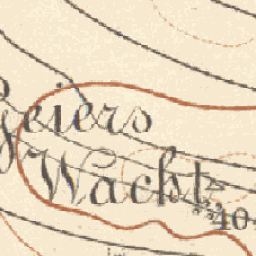 Geiers
Wacht
40